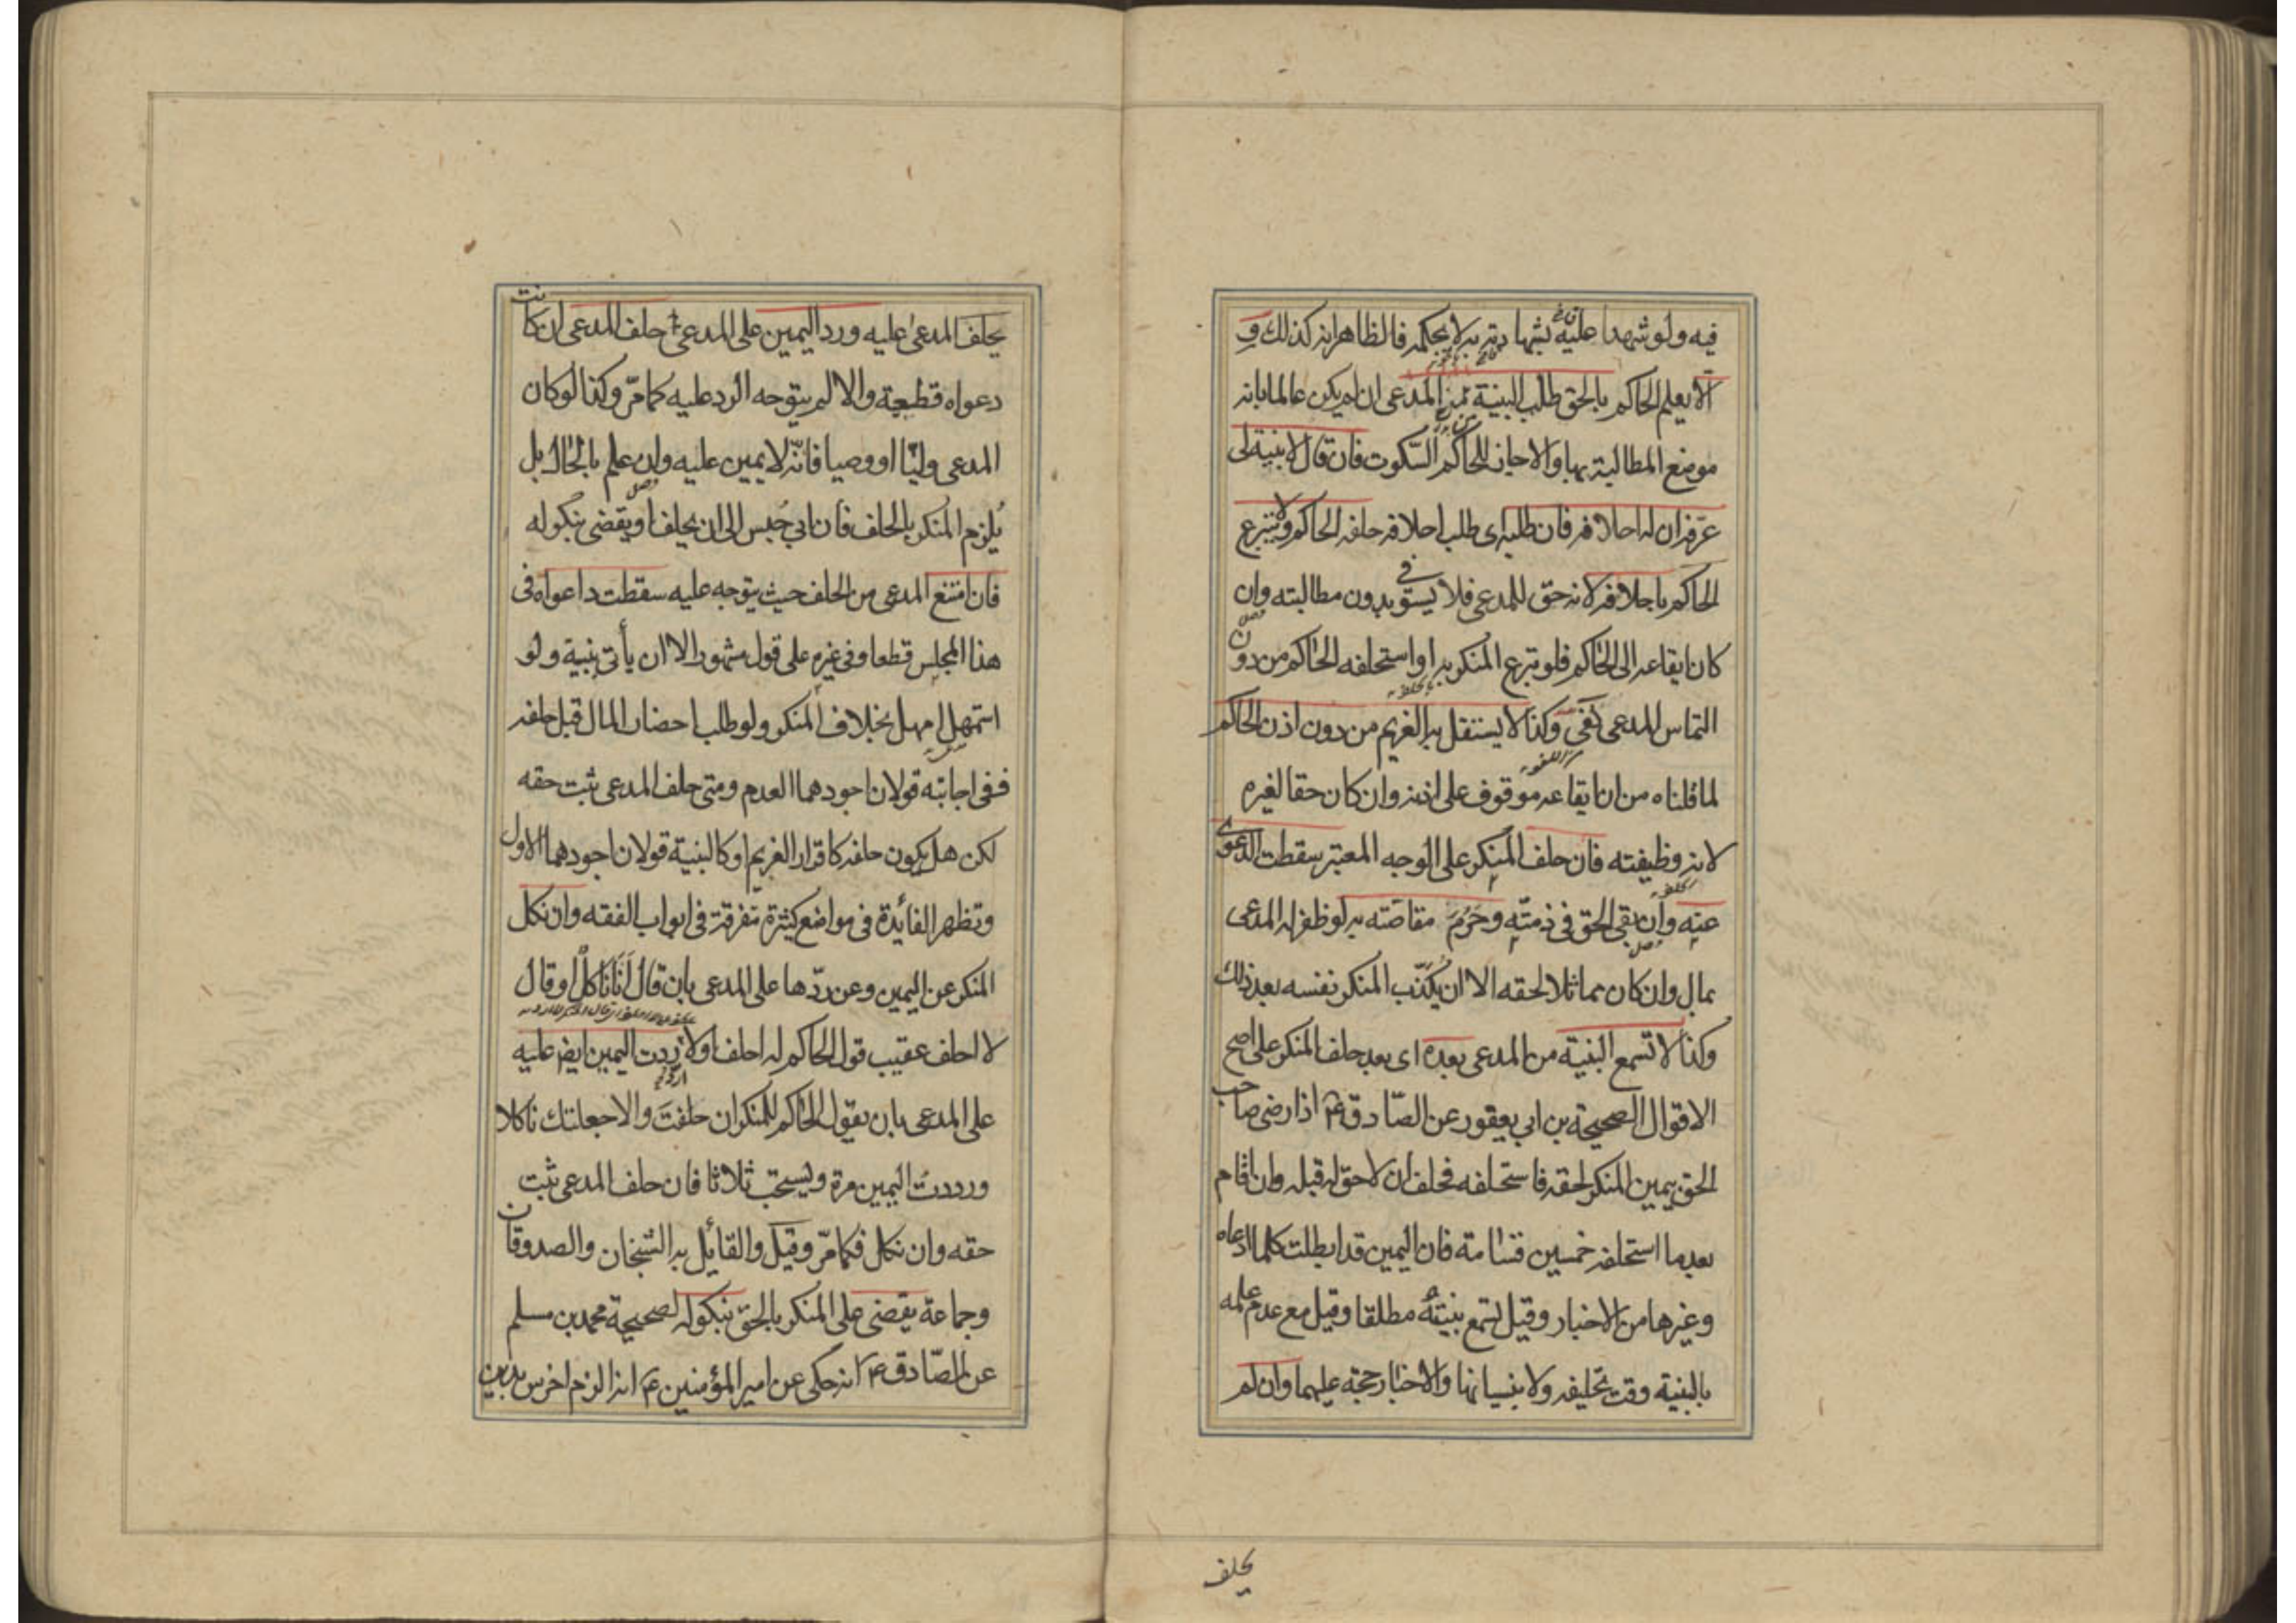 فيه ولو شهدا عليه بشهادته به لا بحكمه فالظاهر انه كذلك و
الا يعلم الحاكم بالحق طلب البينة من المدعى ان لم يكن عالما بانه
موضع المطالبة بها والا جاز للحاكم السّكوت فان قال لا بينة لى
عرّفه ان له احلافه فان طلبه اى طلب احلافه حلفه الحاكم ولا يتبرع
الحاكم باحلافه لانه حقّ للمدعى فلا يستوفى بدون مطالبته وان
كان ايقاعه الى الحاكم فلو تبرع المنكر به او استحلفه الحاكم من دون
التماس المدعى لغى وكذا لا يستقل به الغريم من دون اذن الحاكم
لما قلناه من ان ايقاعه موقوف على اذنه وان كان حقا لغيره
لانه وظيفته فان حلف المنكر على الوجه المعتبر سقطت الدعوى
عنه وان بقى الحق فى ذمتّه وحَرُمَ مقاصّته به لو ظفر له المدعى
بمال وان كان مماثلا لحقه الا ان يُكذّب المنكر نفسه بعد ذلك
وكذا لا تسمع البينة من المدعى بعده اى بعد حلف المنكر على اصح
الاقوال الصحيحة بن ابى يعفور عن الصّادق ع اذا رضى صاحب
الحق بيمين المنكر لحقه فاستحلفه فحلف ان لا حقّ له قبله وان اقام
بعد ما استحلفه خمسين قسامة فان اليمين قد ابطلت كلما ادعاه
وغيرها من الاخبار وقيل تسمع بينتُه مطلقا وقيل مع عدم علمه
بالبينة وقت تحليفه ولا بنسيانها والاخبار حجة عليهما وان لم
يحلف
يحلف المدعى عليه ورد اليمين على المدعى حلف المدعى ان كانت
دعواه قطعية والا لم يتوجه الرد عليه كما مرّ وكذا لو كان
المدعى وليّا او وصيا فانّه لا يمين عليه وان علم بالحال بل
يُلزم المنكر بالحلف فان ابى حُبس الى ان يحلف او يقضى بنكوله
فان امتنع المدعى من الحلف حيث يتوجه عليه سقطت داعواه فى
هذا المجلس قطعا وفى غيره على قول مشهور الا ان يأتى ببينة ولو
استمهل امهل بخلاف المنكر ولو طلب احضار المال قبل حلفه
ففى اجابته قولان اجودهما العدم ومتى حلف المدعى ثبت حقه
لكن هل يكون حلفه كاقرار الغريم او كالبينة قولان اجودهما الاول
وتظهر الفائدة فى مواضع كثيرة متفرقة فى ابواب الفقه وان نكل
المنكر عن اليمين وعن ردّها على المدعى بان قال اَنَا ناكلٌ او قال
لا احلف عقيب قول الحاكم له احلف اولا رُدت اليمين ايضا عليه
على المدعى بان يقول الحاكم للمنكر ان حلفتَ والا جعلتك ناكلا
ورددتُ اليمين مرة ويستحب ثلاثا فان حلف المدعى ثبت
حقه وان نكل فكما مرّ وقيل والقائل به الشيخان والصدوقان
وجماعة يقضى على المنكر بالحق بنكوله لصحيحة محمد بن مسلم
عن الصّادق ع انه حكى عن امير المؤمنين ع انه الزم اخرس بدين